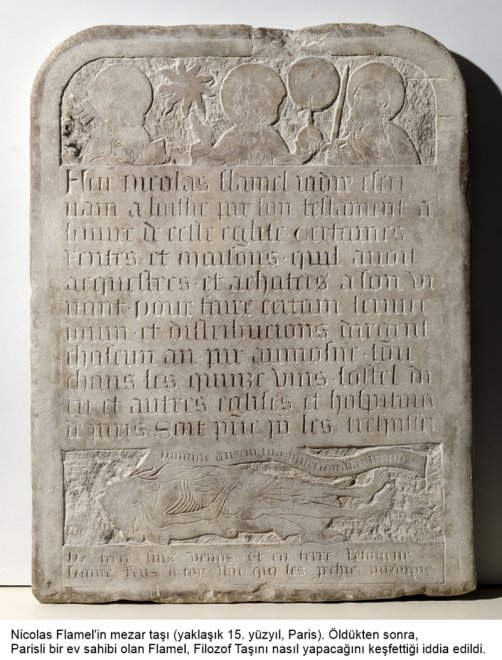 feu nicolas flamel iadis escri
uain a laissie par son testament a
leuure de ceste eglise certaines
rentes et maisons quil auoit
acquestees et achatees a son vi
uant pour faire certain seruice
diuin et distribucions dargent
chascun an par aumosne tou
chans les quinze vins lostel di
eu et autres eglises et hospitaux
a paris Soit prie cy les
Domine deus in tua misericordia
De terre suis venus et en terre retourne
lame rens a toy ihu qui les pechies pardonne
Nicolas Flamel'in mezar taşı (yaklaşık 15. yüzyıl, Paris). Öldükten sonra,
Parisli bir ev sahibi olan Flamel, Filozof Taşını nasıl yapacağını keşfettiği iddia edildi.